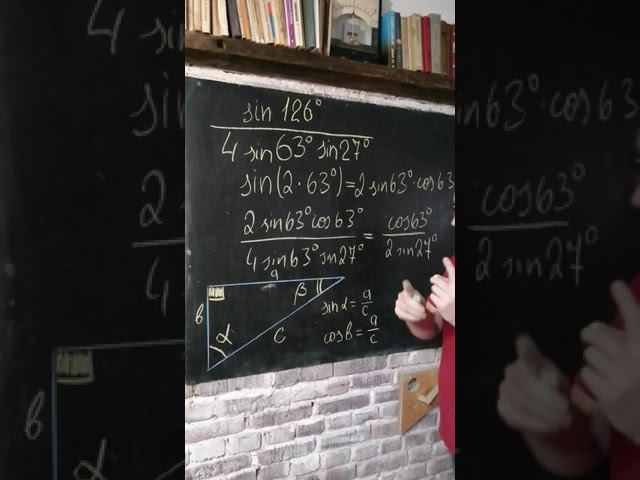 sin 126°
4 sin63° sin27°
sin(2·63°)=2 sin63°·cos63
2 sin63° cos63° = cos63°
4 sin63° sin27° 2 sin27°
a
β
в
α
c
sin α = a/c
cos β = a/c